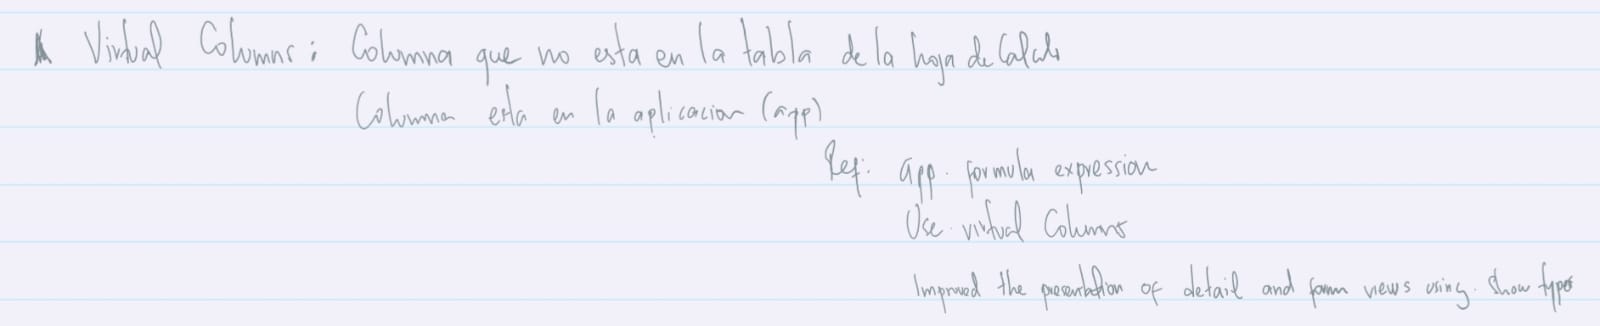 Virtual Columns: Columna que no esta en la tabla de la hoja de Calculo
Columna esta en la aplicacion (app)
Ref: app. formula expression
Use virtual Columns
Improved the presentation of detail and form views using show types